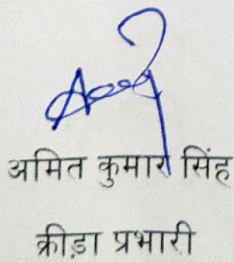 अमित कुमार सिंह
क्रीड़ा प्रभारी